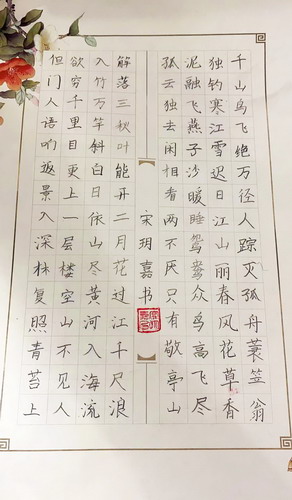 千山鸟飞绝万径人踪灭孤舟蓑笠翁
独钓寒江雪迟日江山丽春风花草香
泥融飞燕子沙暖睡鸳鸯众鸟高飞尽
孤云独去闲相看两不厌只有敬亭山
宋玥嘉书
解落三秋叶能开二月花过江千尺浪
入竹万竿斜白日依山尽黄河入海流
欲穷千里目更上一层楼空山不见人
但门人语响返景入深林复照青苔上